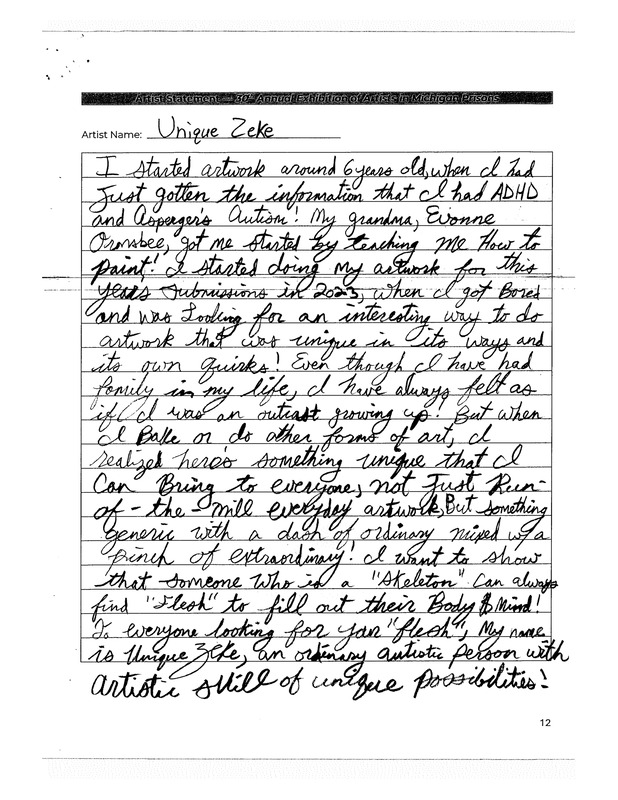 Artist Statement — 30th Annual Exhibition of Artists in Michigan Prisons
Artist Name: Unique Zeke
I started artwork around 6 years old, when I had
Just gotten the information that I had ADHD
and Asperger's Autism! My grandma, Evonne
Ormsbee, got me started by teaching me How to
paint! I started doing my artwork for this
years submissions in 2023, when I got Bored
and was Looking for an interesting way to do
artwork that was unique in its ways and
its own quirks! Even though I have had
family in my life, I have always felt as
if I was an outcast growing up! But when
I Bake or do other forms of art, I
realized here's something unique that I
Can Bring to everyone, not Just Run-
of-the-mill everyday artwork, But something
generic with a dash of ordinary mixed w/a
pinch of extraordinary! I want to show
that someone Who is a "Skeleton" Can always
find "Flesh" to fill out their Body & Mind!
To everyone looking for your "flesh", My name
is Unique Zeke, an ordinary autistic person with
artistic skill of unique possibilities!
12